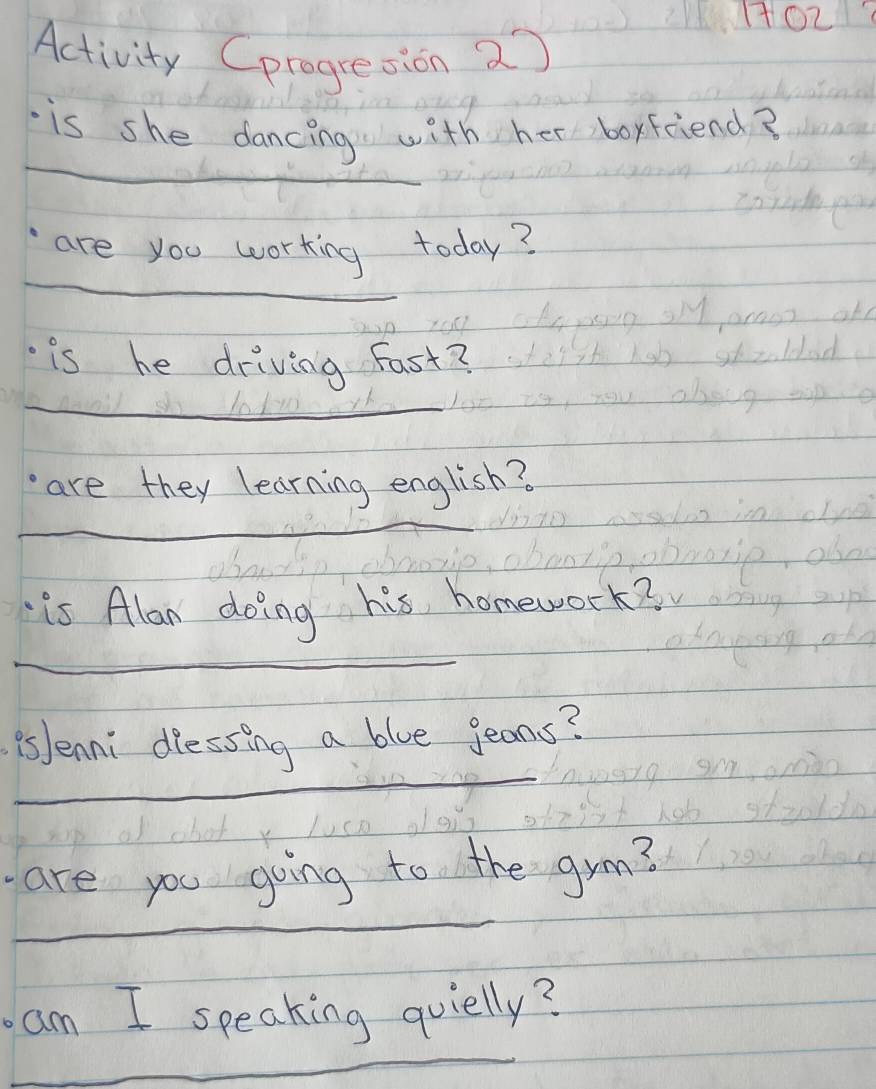 1702
Activity (progresión 2)
• is she dancing with her boyfriend?
• are you working today?
• is he driving fast?
• are they learning english?
• is Alan doing his homework?
• is Jenni dressing a blue jeans?
• are you going to the gym?
• am I speaking quielly?